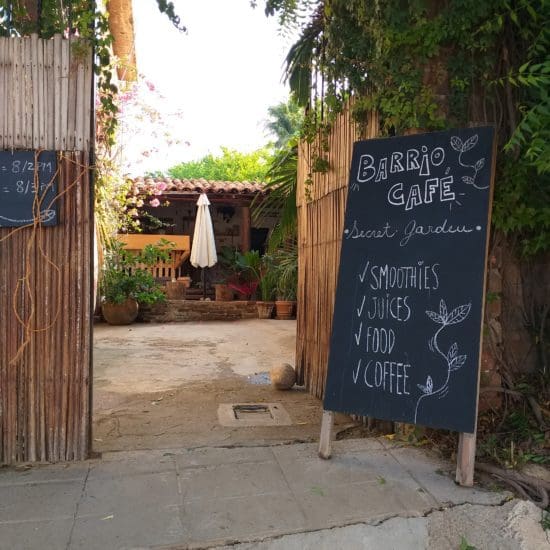 = 8/2PM
= 8/3PM
BARRIO
CAFÉ
• Secret Garden •
✓ SMOOTHIES
✓ JUICES
✓ FOOD
✓ COFFEE